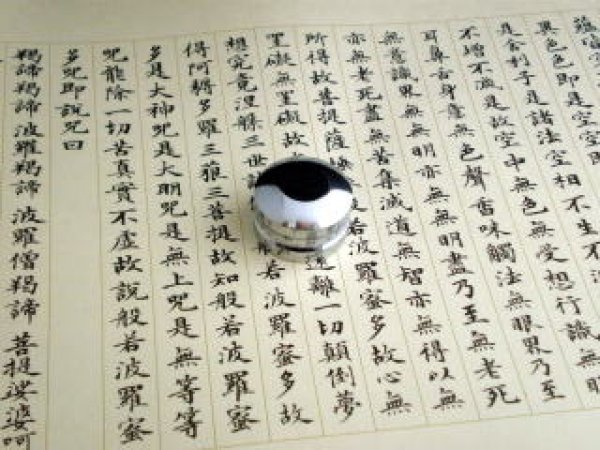 蘊皆空
異色色即是空
是舍利子是諸法空相不生不
不增不滅是故空中無色無受想行識無
耳鼻舌身意無色聲香味觸法無眼界乃至
無意識界無無明亦無無明盡乃至無老死
亦無老死盡無苦集滅道無智亦無得以無
所得故菩提薩埵 若波羅蜜多故心無
罣礙無罣礙故 遠離一切顛倒夢
想究竟涅槃三世諸 般若波羅蜜多故
得阿耨多羅三藐三菩提故知般若波羅蜜
多是大神咒是大明咒是無上咒是無等等
咒能除一切苦真實不虛故說般若波羅蜜
多咒即說咒曰
羯諦羯諦波羅羯諦波羅僧羯諦菩提娑婆呵